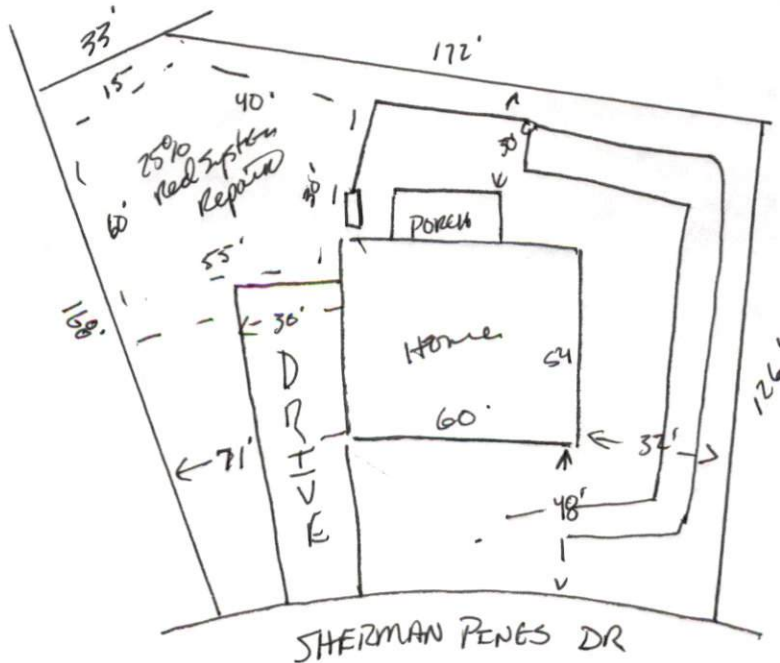 33'
172'
15'
40'
25%
Red System
Repair
30'
60'
55'
PORCH
168'
30'
Home
54
60'
126'
DRIVE
71'
32'
48'
SHERMAN PINES DR